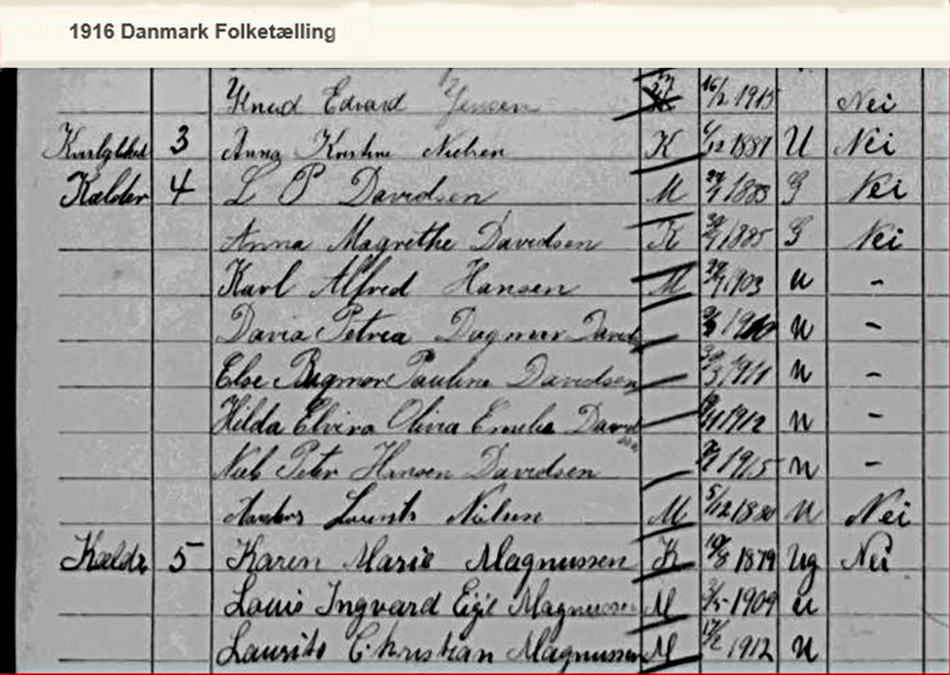 1916 Danmark Folketælling
Knud Edvard Jensen 16/2 1915 Nei
3 Anna Kristine Nielsen K /12 1881 U Nei
Kælder 4 L P Davidsen M 1883 G Nei
Anna Magrethe Davidsen K 1885 G Nei
Karl Alfred Hansen M 1903 u -
Davia Petrea Dagmar David 1910 u -
Else Pauline Davidsen 3 1911 u -
Hilda Elvira Olivia Emelie David 11 1912 u -
sen
Niels Peter Hansen Davidsen 1915 u -
Anders Laurits Nielsen M 5/12 1880 u Nei
Kælder 5 Karen Marie Magnussen K 10/8 1879 Ug Nei
Louis Ingvard Magnussen M 1909 u
Laurits Christian Magnussen M 17/2 1912 u